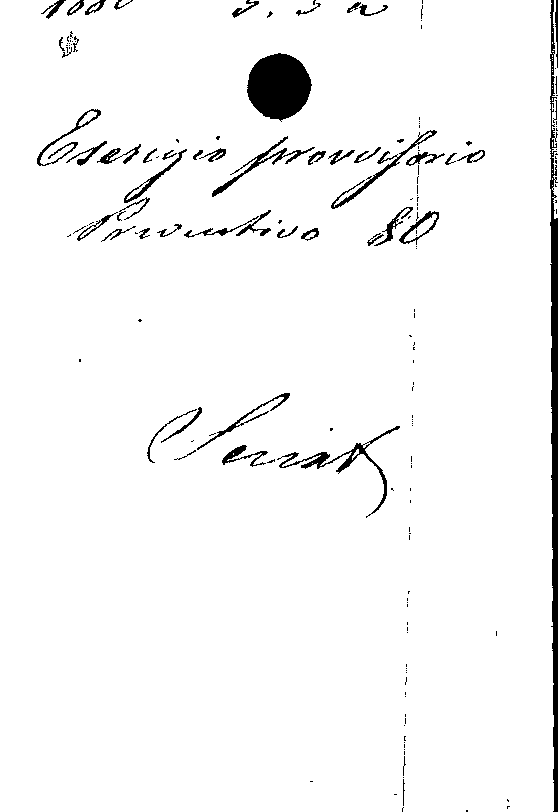 Esercizio provvisorio
Preventivo 80
Senat